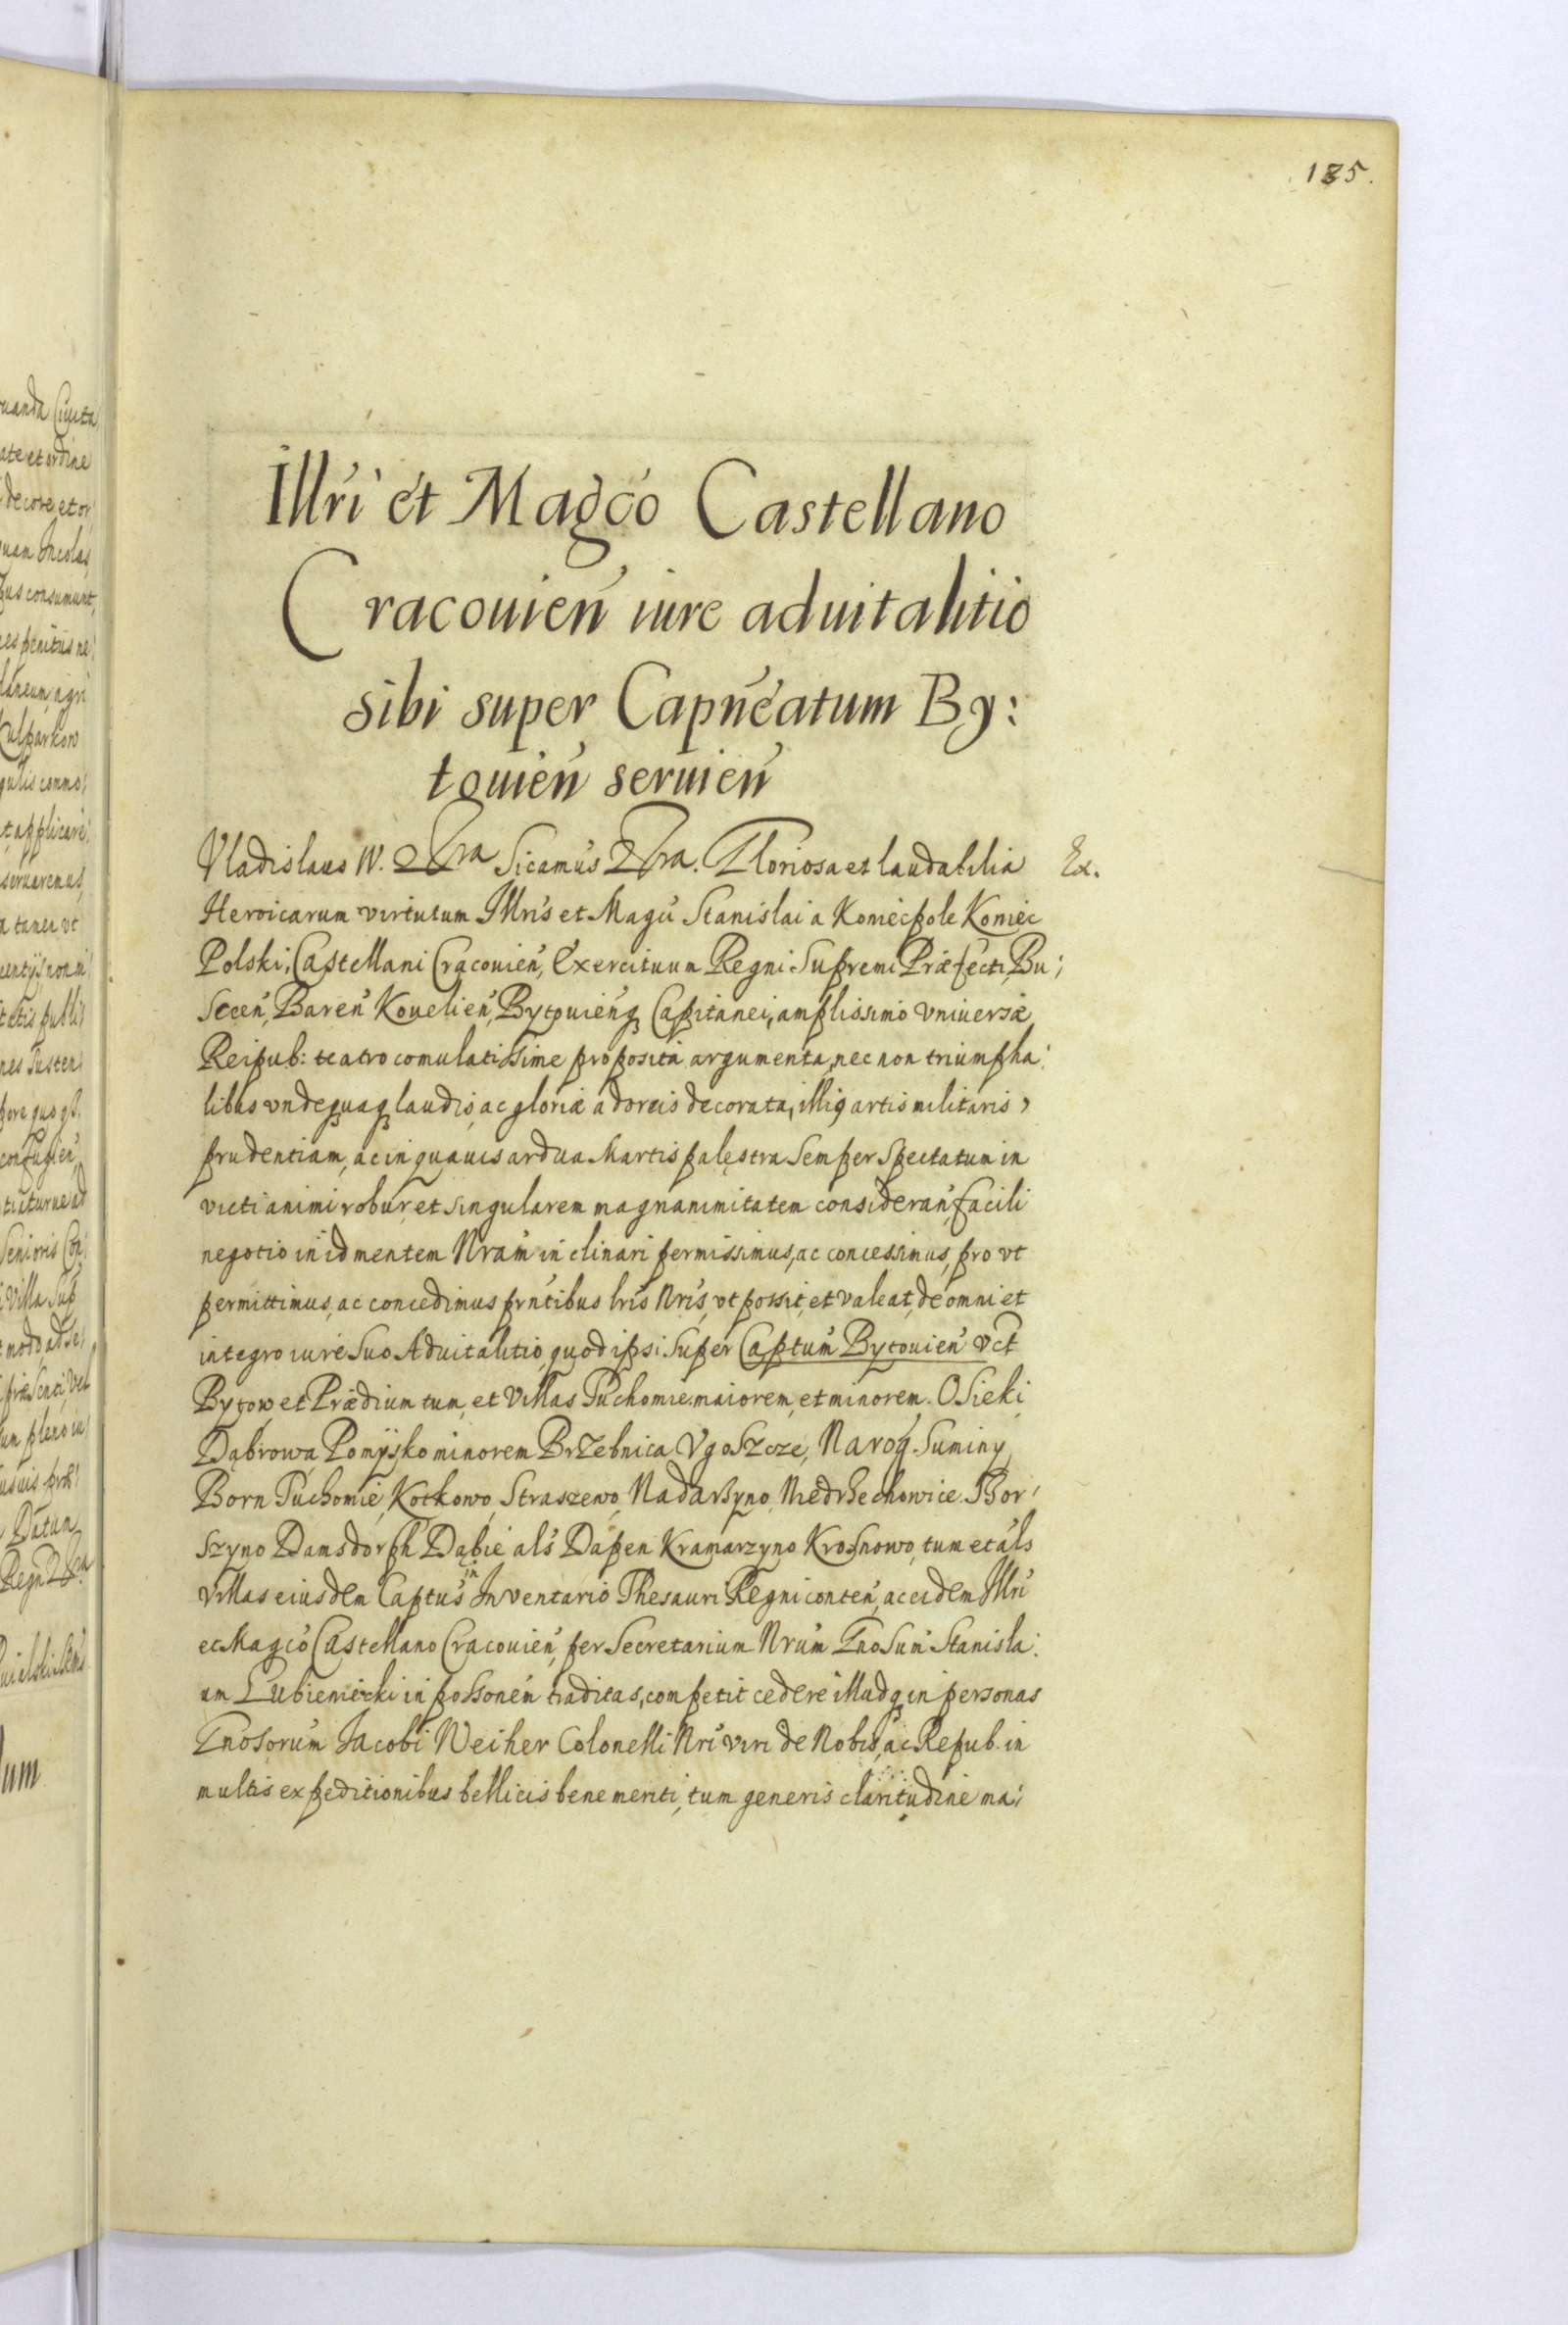 185.
Illri et Magco Castellano
Cracouien iure aduitalitio
sibi super Capneatum By:
touien seruien
Vladislaus IV. &ra Sicamus &ra. Gloriosa et laudabilia Ex.
Heroicarum virtutum Illris et Magci Stanislai a Koniecpole Koniec
Polski, Castellani Cracouien, Exercituum Regni Supremi Præfecti, Bu:
scen, Baren Kouelien, Bytouienq Capitanei, amplissimo vniuersæ
Reipub: teatro comulatissime proposita argumenta, nec non triumpha:
libus vndequaq laudis, ac gloriæ adoreis decorata, illiq artis militaris
prudentiam, ac in quauis ardua Martis palestra semper spectatum in
uicti animi robur, et singularem magnanimitatem consideran, facili
negotio in id mentem Nram inclinari permissimus, ac concessimus, pro vt
permittimus, ac concedimus prntibus lris Nris, vt possit, et valeat, de omni et
integro iure Suo Aduitalitio, quod ipsi Super Captum Bytouien vct
Bytow et Prædium tum, et Villas Tuchomie maiorem, et minorem. Osieki
Dąbrowa Pomysko minorem Brzebnica Vgoszcze, Naroq Suminy
Born Tuchomie, Kotkowo, Straszewo, Nadarzyno, Niedrzechowice Bor:
szyno Damsdorph Dąbie als Dapen Kramarzyno Krosnowo, tum et als
Villas eiusdem Captus in Inventario Thesauri Regni conten, ac eidem Illri
et Magco Castellano Cracouien, per Secretarium Nrum Gnosum Stanisla:
um Lubieniecki in possonem traditas, competit cedere illudq in personas
Gnosorum Jacobi Weiher Colonelli Nri viri de Nobis, ac Repub. in
multis expeditionibus bellicis bene meriti, tum generis claritudine ma: